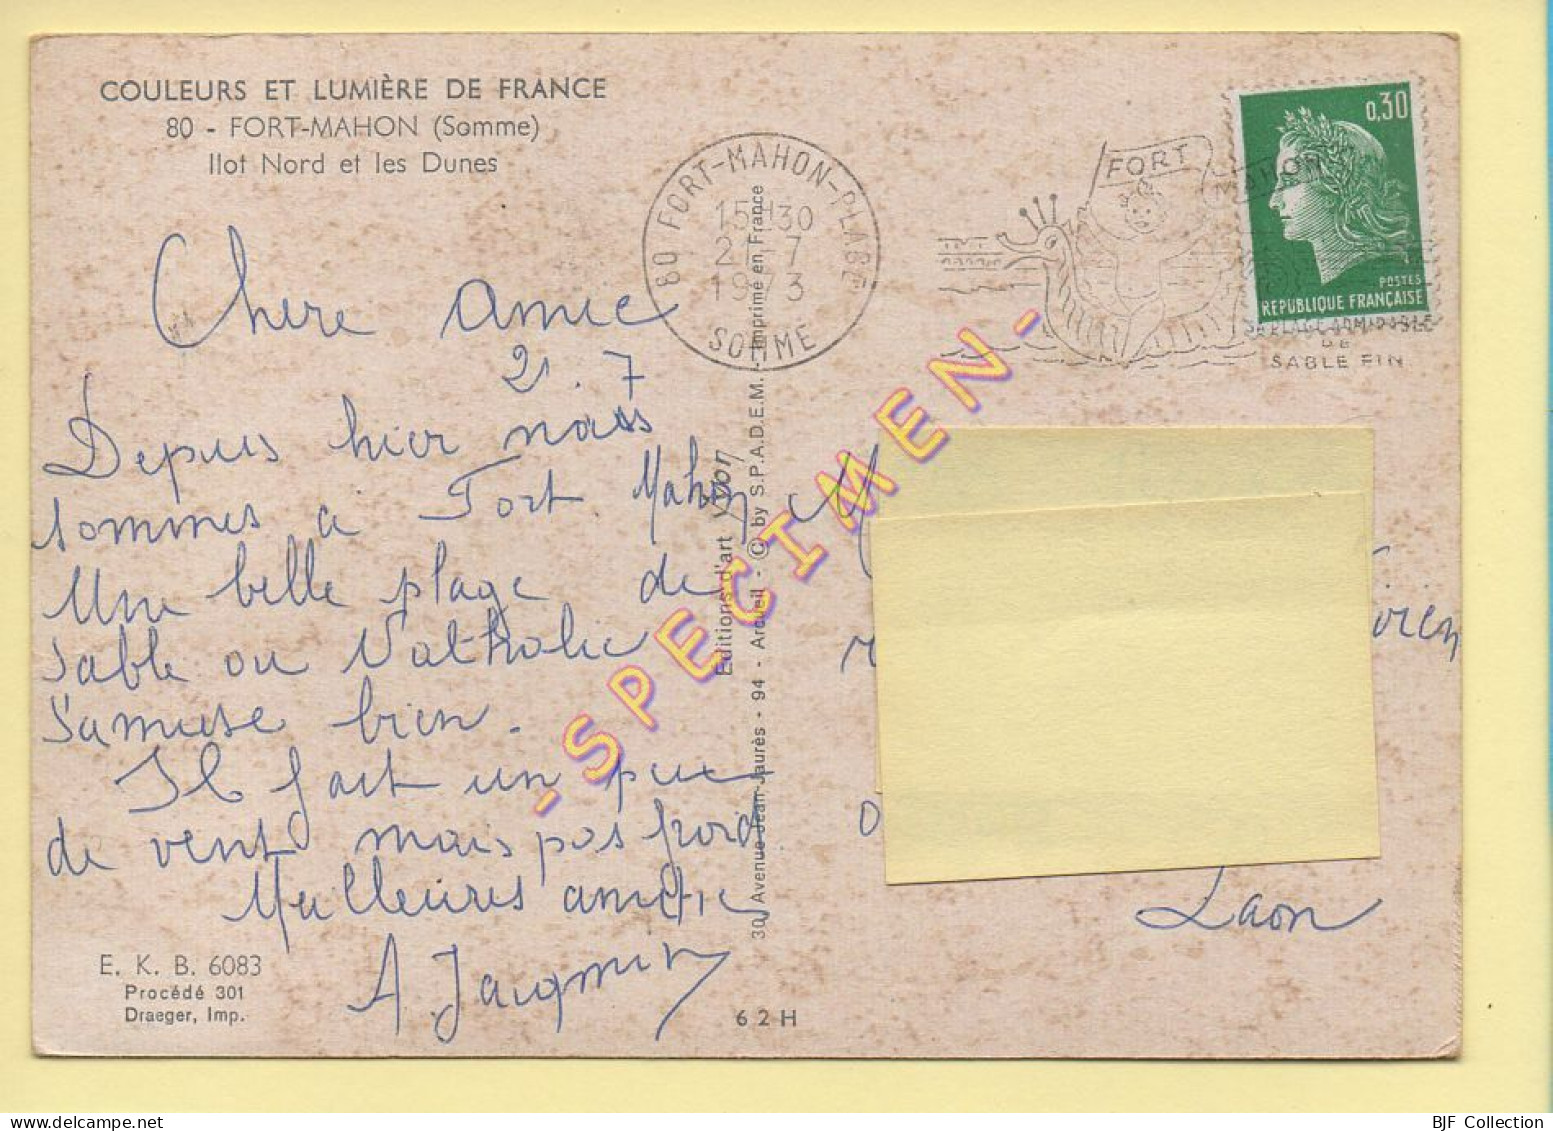 COULEURS ET LUMIÈRE DE FRANCE
80 - FORT-MAHON (Somme)
Ilot Nord et les Dunes
Chere amie
21.7
Depuis hier nous
sommes a Fort Mahon
Une belle plage de
sable ou Nathalie
s'amuse bien.
Il fait un peu
de vent mais pas froid
Meilleures amitie
A. Jacqmin
E. K. B. 6083
Procédé 301
Draeger, Imp.
62H
Editions d'art Yvon
30, Avenue Jean-Jaurès - 94 - Arcueil - © by S.P.A.D.E.M. - Imprimé en France
80 FORT-MAHON-PLAGE
15H30
21-7
1973
SOMME
FORT
MAHON
SA PLAGE ADMIRABLE
DE
SABLE FIN
0,30
POSTES
RÉPUBLIQUE FRANÇAISE
- SPECIMEN -
M
Laon
BJF Collection